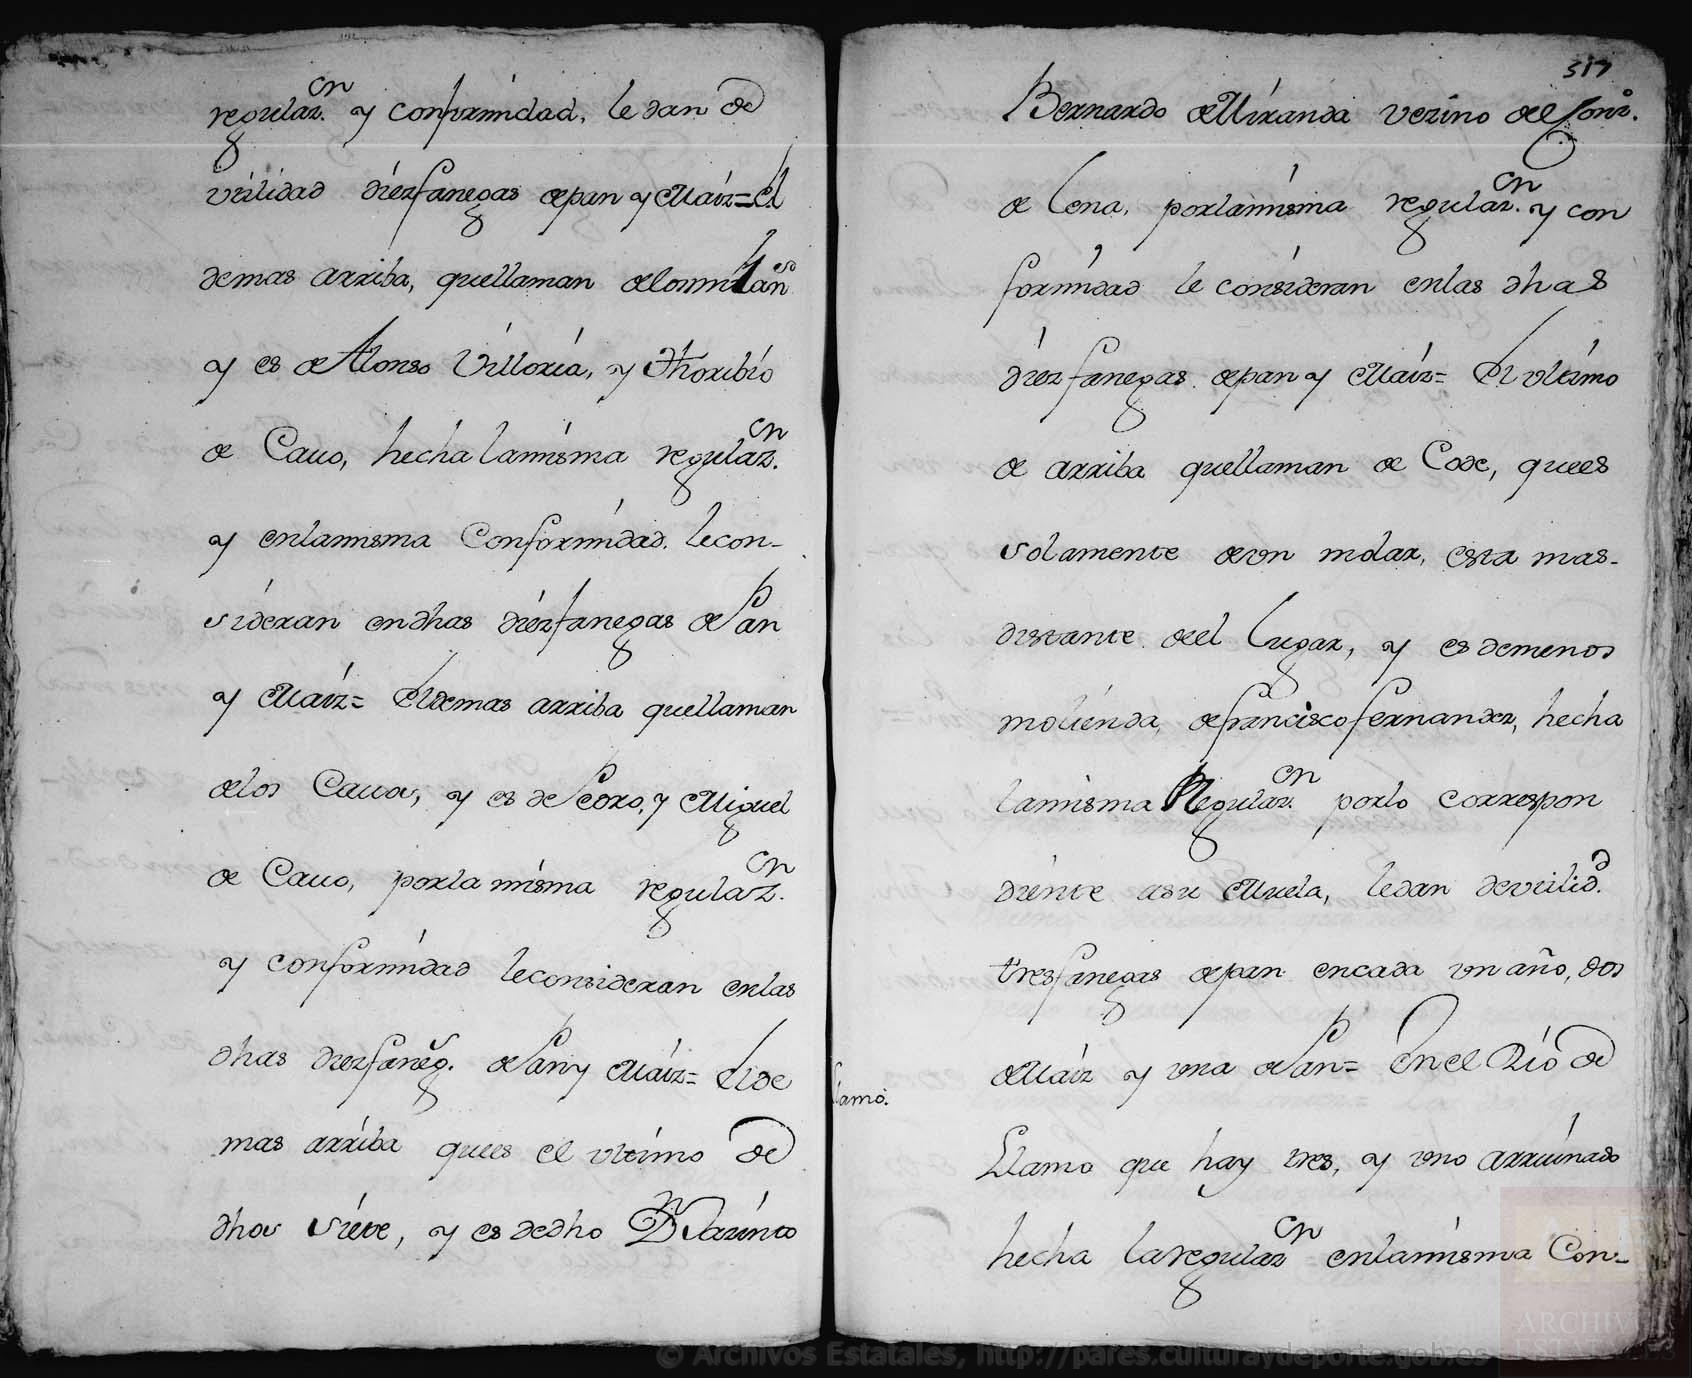 regulaz.on y conformidad, le dan de
vtilidad diez fanegas de pan y Maiz = El
de mas arriba, que llaman
y es de Alonso Villoria, y Thoribio
de Cauo, hecha la misma regulaz.on
y en la misma Conformidad. le con-
sideran en dhas diez fanegas de Pan
y Maiz = El de mas arriba que llaman
de los Cauos, y es de Pedro, y Miguel
de Cauo, por la misma regulaz.on
y conformidad le consideran en las
dhas diez faneg.s de Pan y Maiz = El de
mas arriba que es el vltimo de
dhos siete, y es de dho Dn Jazinto
317
Bernardo de Miranda vezino del Conz.o
de Lena, por la misma regulaz.on y con
formidad le consideran en las dhas
diez fanegas de pan y Maiz = El vltimo
de arriba que llaman de Code, que es
solamente de vn molar, esta mas
distante del Lugar, y es de menos
molienda, de francisco fernandez, hecha
la misma Regulaz.on por lo correspon
diente a su Muela, le dan de vtilid.d
tres fanegas de pan en cada vn año, dos
de Maiz y vna de Pan = En el Rio de
Llamo.
Llamo que hay tres, y vno arruinado
hecha la regulaz.on en la misma Con-
© Archivos Estatales, http://pares.culturaydeporte.gob.es
ARCHIVOS
ESTATALES